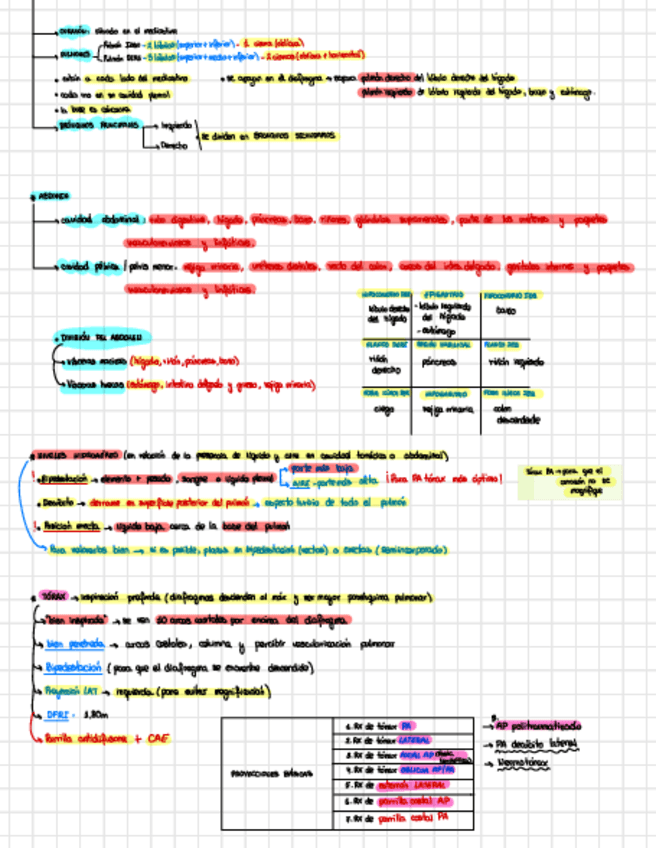 CORAZÓN: situado en el mediastino
PULMONES Pulmón IZDO - 2 lóbulos (superior + inferior) - 1 cisura (oblicua)
Pulmón DCHO - 3 lóbulos (superior + medio + inferior) - 2 cisuras (oblicua + horizontal)
• están a cada lado del mediastino • se apoyan en el diafragma → separa pulmón derecho del lóbulo derecho del hígado
• cada uno en su cavidad pleural pulmón izquierdo de lóbulo izquierdo del hígado, bazo y estómago.
• la base es cóncava
BRONQUIOS PRINCIPALES → Izquierdo
→ Derecho
se dividen en BRONQUIOS SECUNDARIOS
• ABDOMEN
→ cavidad abdominal: tubo digestivo, hígado, páncreas, bazo, riñones, glándulas suprarrenales, parte de los uréteres y paquetes
vasculonerviosos y linfáticos
→ cavidad pélvica / pelvis menor: vejiga urinaria, uréteres distales, recto del colon, asas del íleo delgado, genitales internos y paquetes
vasculonerviosos y linfáticos
HIPOCONDRIO DER EPIGASTRIO HIPOCONDRIO IZQ
lóbulo derecho del hígado
- lóbulo izquierdo del hígado
- estómago
bazo
FLANCO DERE REGIÓN UMBILICAL FLANCO IZQ
riñón derecho
páncreas
riñón izquierdo
FOSA ILÍACA DER HIPOGASTRIO FOSA ILÍACA IZQ
ciego
vejiga urinaria
colon descendente
• DIVISIÓN DEL ABDOMEN
→ Vísceras macizas (hígado, riñón, páncreas, bazo)
→ Vísceras huecas (estómago, intestino delgado y grueso, vejiga urinaria)
• NIVELES HIDROAÉREOS (en relación de la presencia de líquido y aire en cavidad torácica o abdominal)
! Bipedestación → elemento + pesado, sangre o líquido pleural parte más baja
AIRE - parte más alta ¡Para PA tórax más óptimo!
• Decúbito → derrame en superficie posterior del pulmón → aspecto turbio de todo el pulmón
! Posición erecta → líquido baja cerca de la base del pulmón
Para valorarlos bien → si es posible, placas en bipedestación (rectos) o erectas (semiincorporado)
Tórax PA → para que el corazón no se magnifique
• TÓRAX → inspiración profunda (diafragmas descienden al máx y ver mayor parénquima pulmonar)
→ "bien inspirada" → se ven 10 arcos costales por encima del diafragma
→ bien penetrada → arcos costales, columna y percibir vascularización pulmonar
→ Bipedestación (para que el diafragma se encuentre descendido)
→ Proyección LAT → izquierda (para evitar magnificación)
→ DFRI: 1,80m
→ Parrilla antidifusora + CAE
PROYECCIONES BÁSICAS
1. RX de tórax PA
2. RX de tórax LATERAL
3. RX de tórax AXIAL AP
4. RX de tórax OBLICUA AP/PA
5. RX de esternón LATERAL
6. RX de parrilla costal AP
7. RX de parrilla costal PA
→ AP politraumatizado
→ PA decúbito lateral
→ Neumotórax